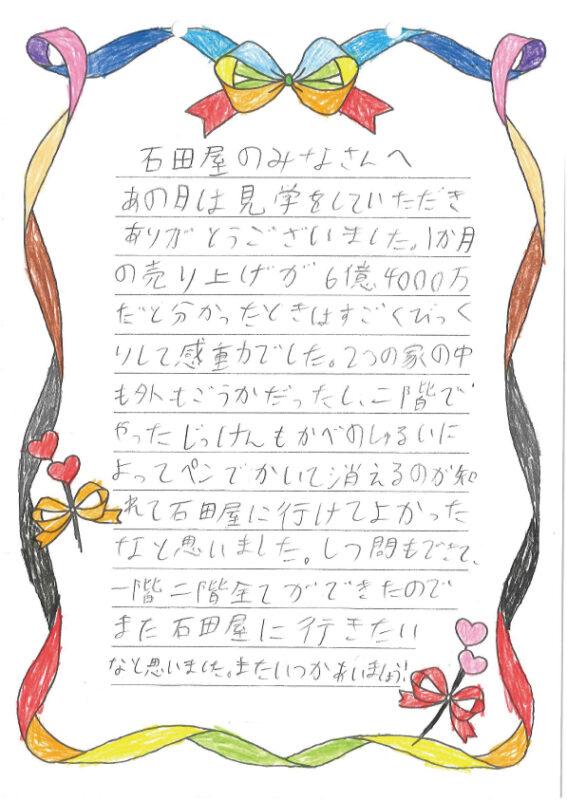 石田屋のみなさんへ
あの日は見学をしていただき
ありがとうございました。1か月
の売り上げが6億4000万
だと分かったときはすごくびっく
りして感動でした。2つの家の中
も外もごうかだったし、二階で
やったじっけんもかべのしゅるいに
よってペンでかいて消えるのが知
れて石田屋に行けてよかった
なと思いました。しつ問もできて、
一階二階全てができたので
また石田屋に行きたい
なと思いました。またいつかあいましょう!